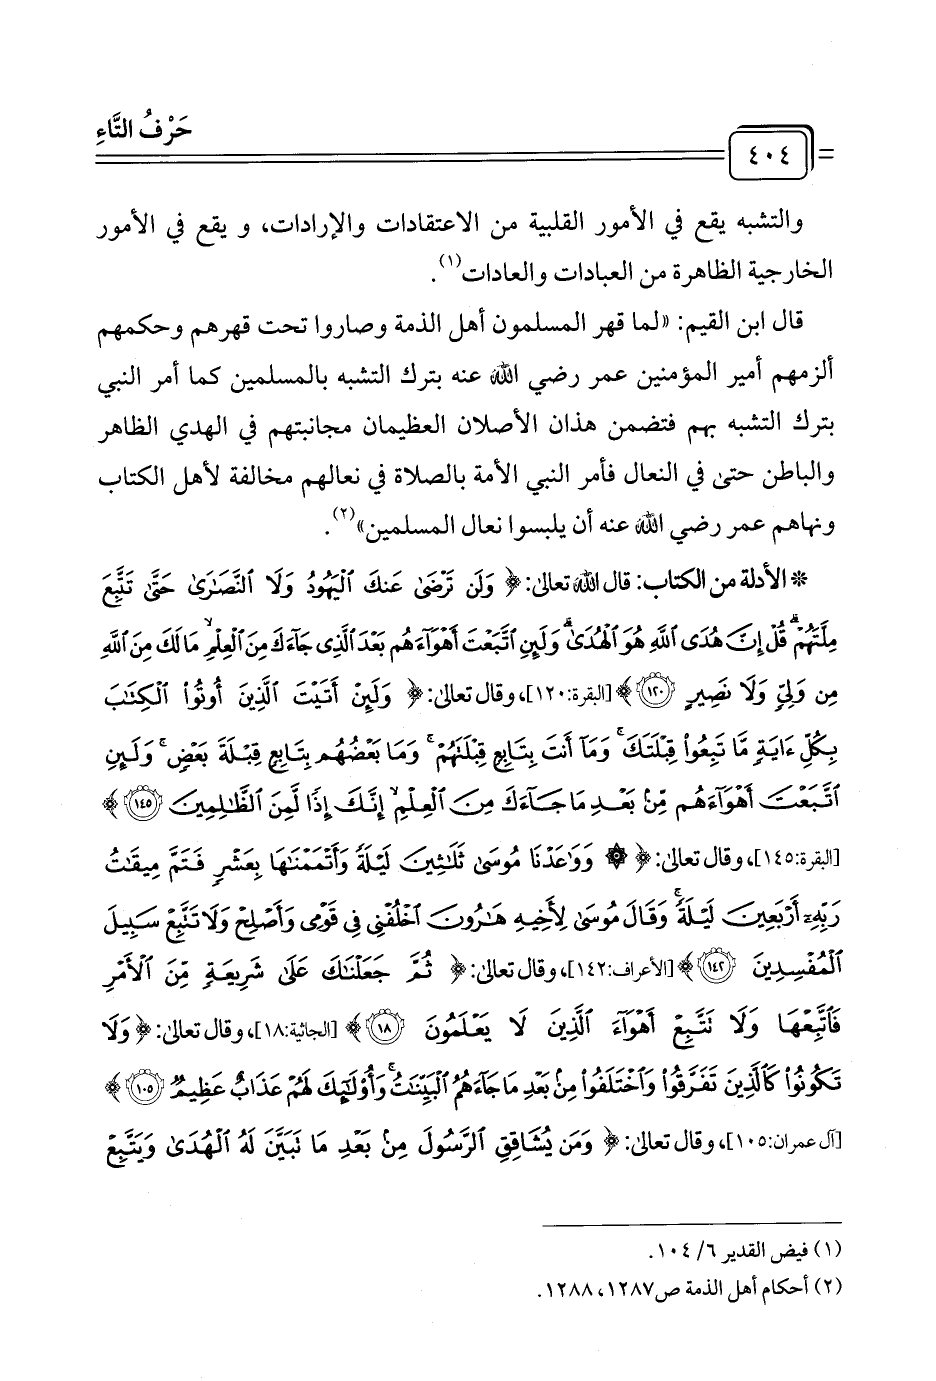 حَرْفُ التَّاءِ
٤٠٤
والتشبه يقع في الأمور القلبية من الاعتقادات والإرادات، و يقع في الأمور
الخارجية الظاهرة من العبادات والعادات(١).
قال ابن القيم: «لما قهر المسلمون أهل الذمة وصاروا تحت قهرهم وحكمهم
ألزمهم أمير المؤمنين عمر رضي الله عنه بترك التشبه بالمسلمين كما أمر النبي
بترك التشبه بهم فتضمن هذان الأصلان العظيمان مجانبتهم في الهدي الظاهر
والباطن حتىٰ في النعال فأمر النبي الأمة بالصلاة في نعالهم مخالفة لأهل الكتاب
ونهاهم عمر رضي الله عنه أن يلبسوا نعال المسلمين»(٢).
* الأدلة من الكتاب: قال الله تعالىٰ: ﴿ وَلَن تَرْضَىٰ عَنكَ ٱلْيَهُودُ وَلَا ٱلنَّصَٰرَىٰ حَتَّىٰ تَتَّبِعَ
مِلَّتَهُمْ ۗ قُلْ إِنَّ هُدَى ٱللَّهِ هُوَ ٱلْهُدَىٰ ۗ وَلَئِنِ ٱتَّبَعْتَ أَهْوَآءَهُم بَعْدَ ٱلَّذِى جَآءَكَ مِنَ ٱلْعِلْمِ ۙ مَا لَكَ مِنَ ٱللَّهِ
مِن وَلِىٍّ وَلَا نَصِيرٍ ١٢٠ ﴾ [البقرة:١٢٠]، وقال تعالىٰ: ﴿ وَلَئِنْ أَتَيْتَ ٱلَّذِينَ أُوتُوا۟ ٱلْكِتَٰبَ
بِكُلِّ ءَايَةٍ مَّا تَبِعُوا۟ قِبْلَتَكَ ۚ وَمَآ أَنتَ بِتَابِعٍ قِبْلَتَهُمْ ۚ وَمَا بَعْضُهُم بِتَابِعٍ قِبْلَةَ بَعْضٍ ۚ وَلَئِنِ
ٱتَّبَعْتَ أَهْوَآءَهُم مِّنۢ بَعْدِ مَا جَآءَكَ مِنَ ٱلْعِلْمِ ۙ إِنَّكَ إِذًا لَّمِنَ ٱلظَّٰلِمِينَ ١٤٥ ﴾
[البقرة:١٤٥]، وقال تعالىٰ: ﴿ ۞ وَوَٰعَدْنَا مُوسَىٰ ثَلَٰثِينَ لَيْلَةً وَأَتْمَمْنَٰهَا بِعَشْرٍ فَتَمَّ مِيقَٰتُ
رَبِّهِۦٓ أَرْبَعِينَ لَيْلَةً ۚ وَقَالَ مُوسَىٰ لِأَخِيهِ هَٰرُونَ ٱخْلُفْنِى فِى قَوْمِى وَأَصْلِحْ وَلَا تَتَّبِعْ سَبِيلَ
ٱلْمُفْسِدِينَ ١٤٢ ﴾ [الأعراف:١٤٢]، وقال تعالىٰ: ﴿ ثُمَّ جَعَلْنَٰكَ عَلَىٰ شَرِيعَةٍ مِّنَ ٱلْأَمْرِ
فَٱتَّبِعْهَا وَلَا تَتَّبِعْ أَهْوَآءَ ٱلَّذِينَ لَا يَعْلَمُونَ ١٨ ﴾ [الجاثية:١٨]، وقال تعالىٰ: ﴿ وَلَا
تَكُونُوا۟ كَٱلَّذِينَ تَفَرَّقُوا۟ وَٱخْتَلَفُوا۟ مِنۢ بَعْدِ مَا جَآءَهُمُ ٱلْبَيِّنَٰتُ ۚ وَأُو۟لَٰٓئِكَ لَهُمْ عَذَابٌ عَظِيمٌ ١٠٥ ﴾
[آل عمران:١٠٥]، وقال تعالىٰ: ﴿ وَمَن يُشَاقِقِ ٱلرَّسُولَ مِنۢ بَعْدِ مَا تَبَيَّنَ لَهُ ٱلْهُدَىٰ وَيَتَّبِعْ
(١) فيض القدير ٦/ ١٠٤.
(٢) أحكام أهل الذمة ص١٢٨٧، ١٢٨٨.